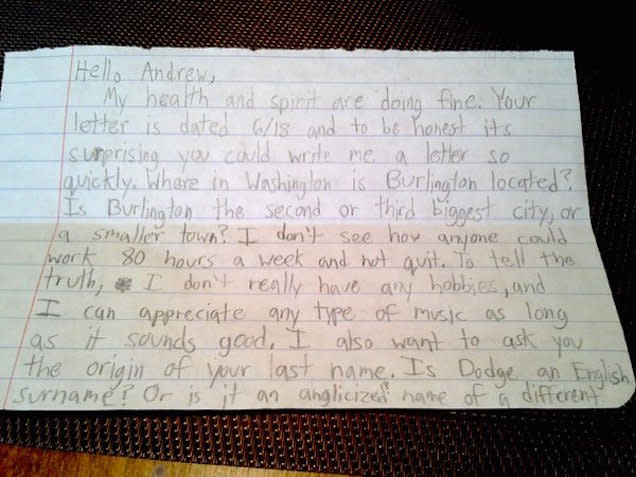 Hello Andrew,
My health and spirit are doing fine. Your
letter is dated 6/18 and to be honest its
surprising you could write me a letter so
quickly. Where in Washington is Burlington located?
Is Burlington the second or third biggest city, or
a smaller town? I don't see how anyone could
work 80 hours a week and not quit. To tell the
truth, I don't really have any hobbies, and
I can appreciate any type of music as long
as it sounds good. I also want to ask you
the origin of your last name. Is Dodge an English
surname? Or is it an anglicized name of a different